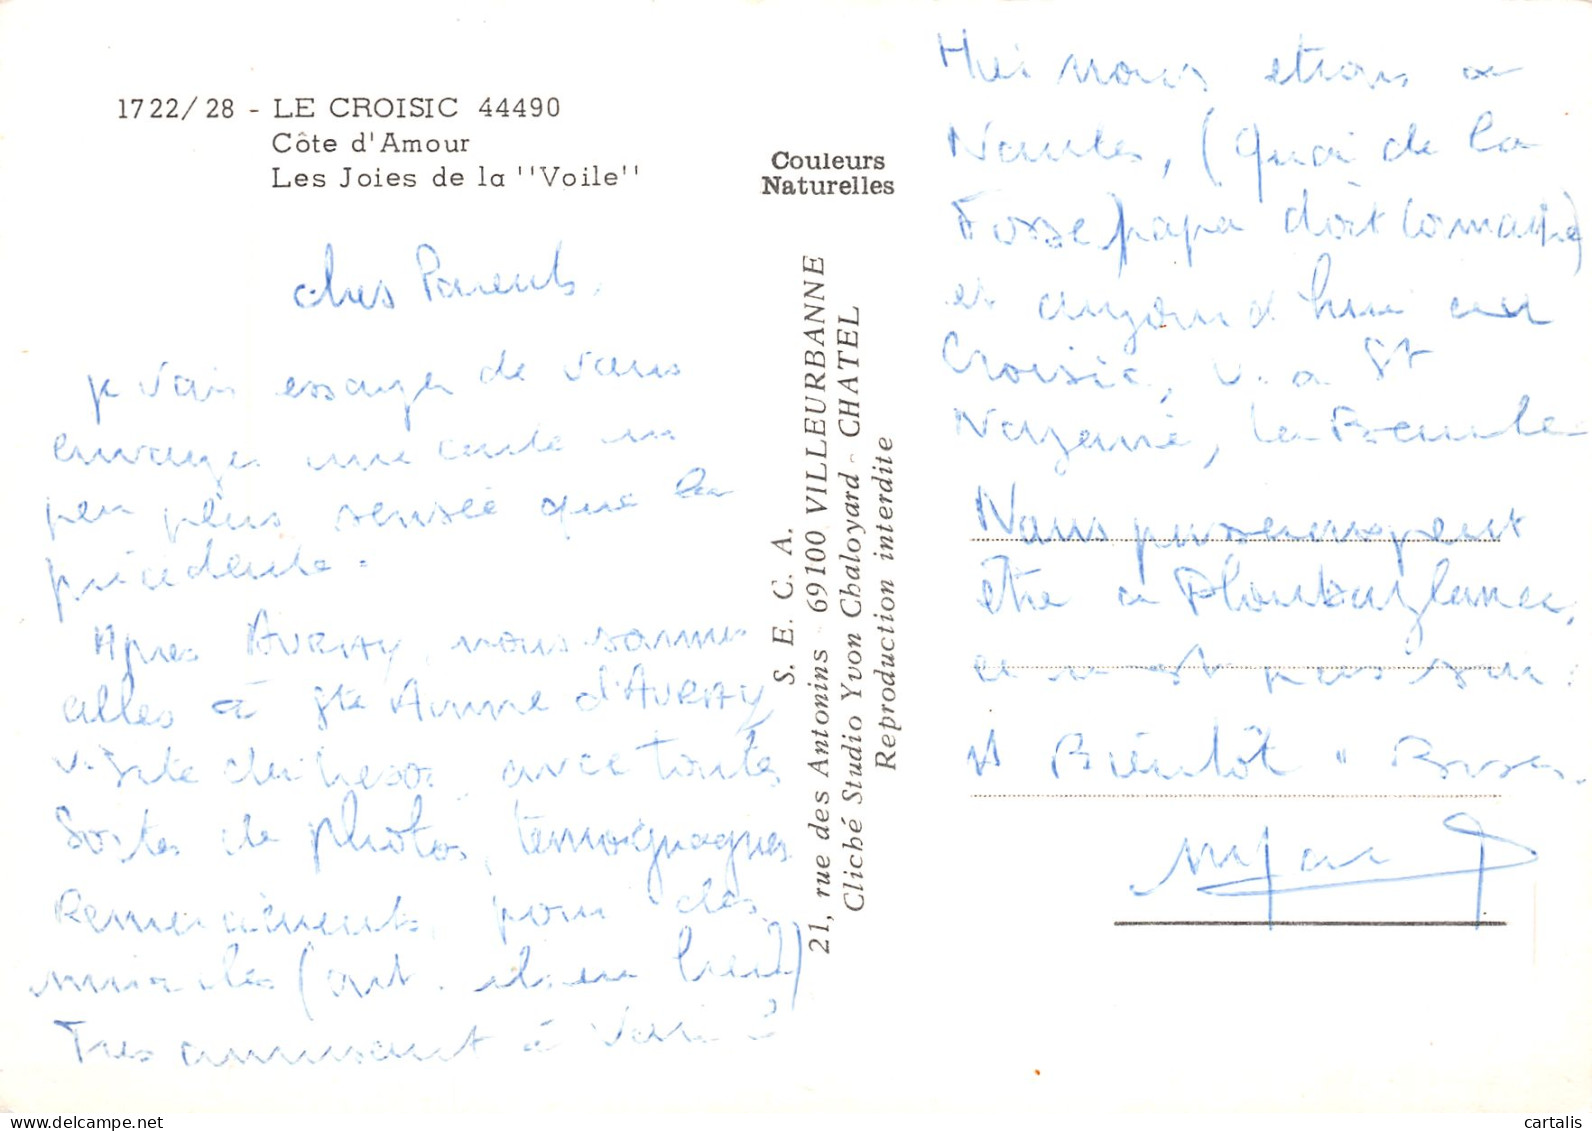 1722/28 - LE CROISIC 44490
Côte d'Amour
Les Joies de la "Voile"
Couleurs
Naturelles
S. E. C. A.
21, rue des Antonins - 69100 VILLEURBANNE
Cliché Studio Yvon Chaloyard - CHATEL
Reproduction interdite
chers Parents,
je vais essayer de vous
envoyer une carte un
peu plus sensée que la
précédente.
Apres AURAY, nous sommes
alles à Ste Anne d'AURAY
visite du tresor avec toutes
Sortes de photos, temoignages
Remerciements, pour des
miracles (ont ils eu lieu?)
Tres amusant à Voir
Hier nous etions a
Nantes, (Quai de la
Fosse papa doit connaitre)
et aujourd'hui au
Croisic, a St
Nazaire, la Baule
Nous passerons peut
être a
ce n'est pas sûr.
A Bientôt Bises.